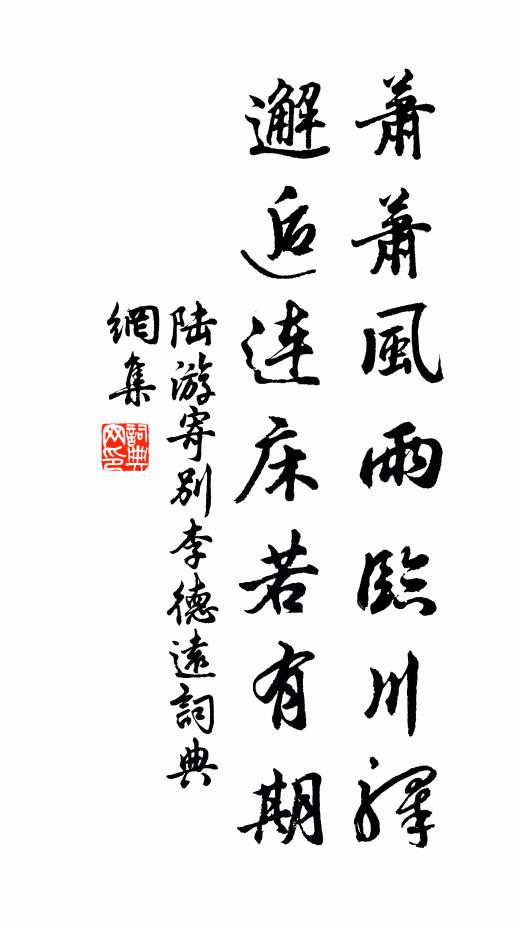 蕭蕭風雨臨川驛
邂逅連床若有期
陸游寄別李德遠詞典
網集
詞典網印